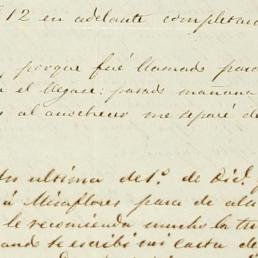 12 en adelante completar
porque fué llamado para
el llegase: pasado mañana
al anochecer me separé de
su ultima del 1º. de Dic.
á Miraflores para de ala
le recomienda mucho la tu
ando se escribí mi carta de